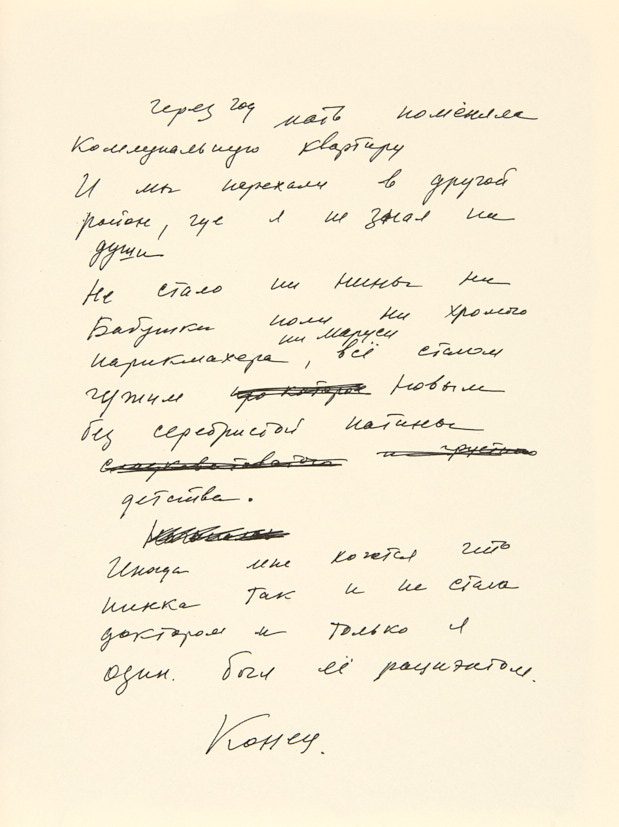 Через год мать поменяла
Коммунальную квартиру
И мы перехали в другой
район, где я не знал ни
души
Не стало ни нины ни
Бабушки поли ни хромого
ни Маруси
парикмахера, всё сталом
чужим про которое новым
без серебристой патины
и грустно
детства.
Иногда мне кажется что
нинка так и не стала
доктором и только я
один. был её рациэнтом.
Конец.